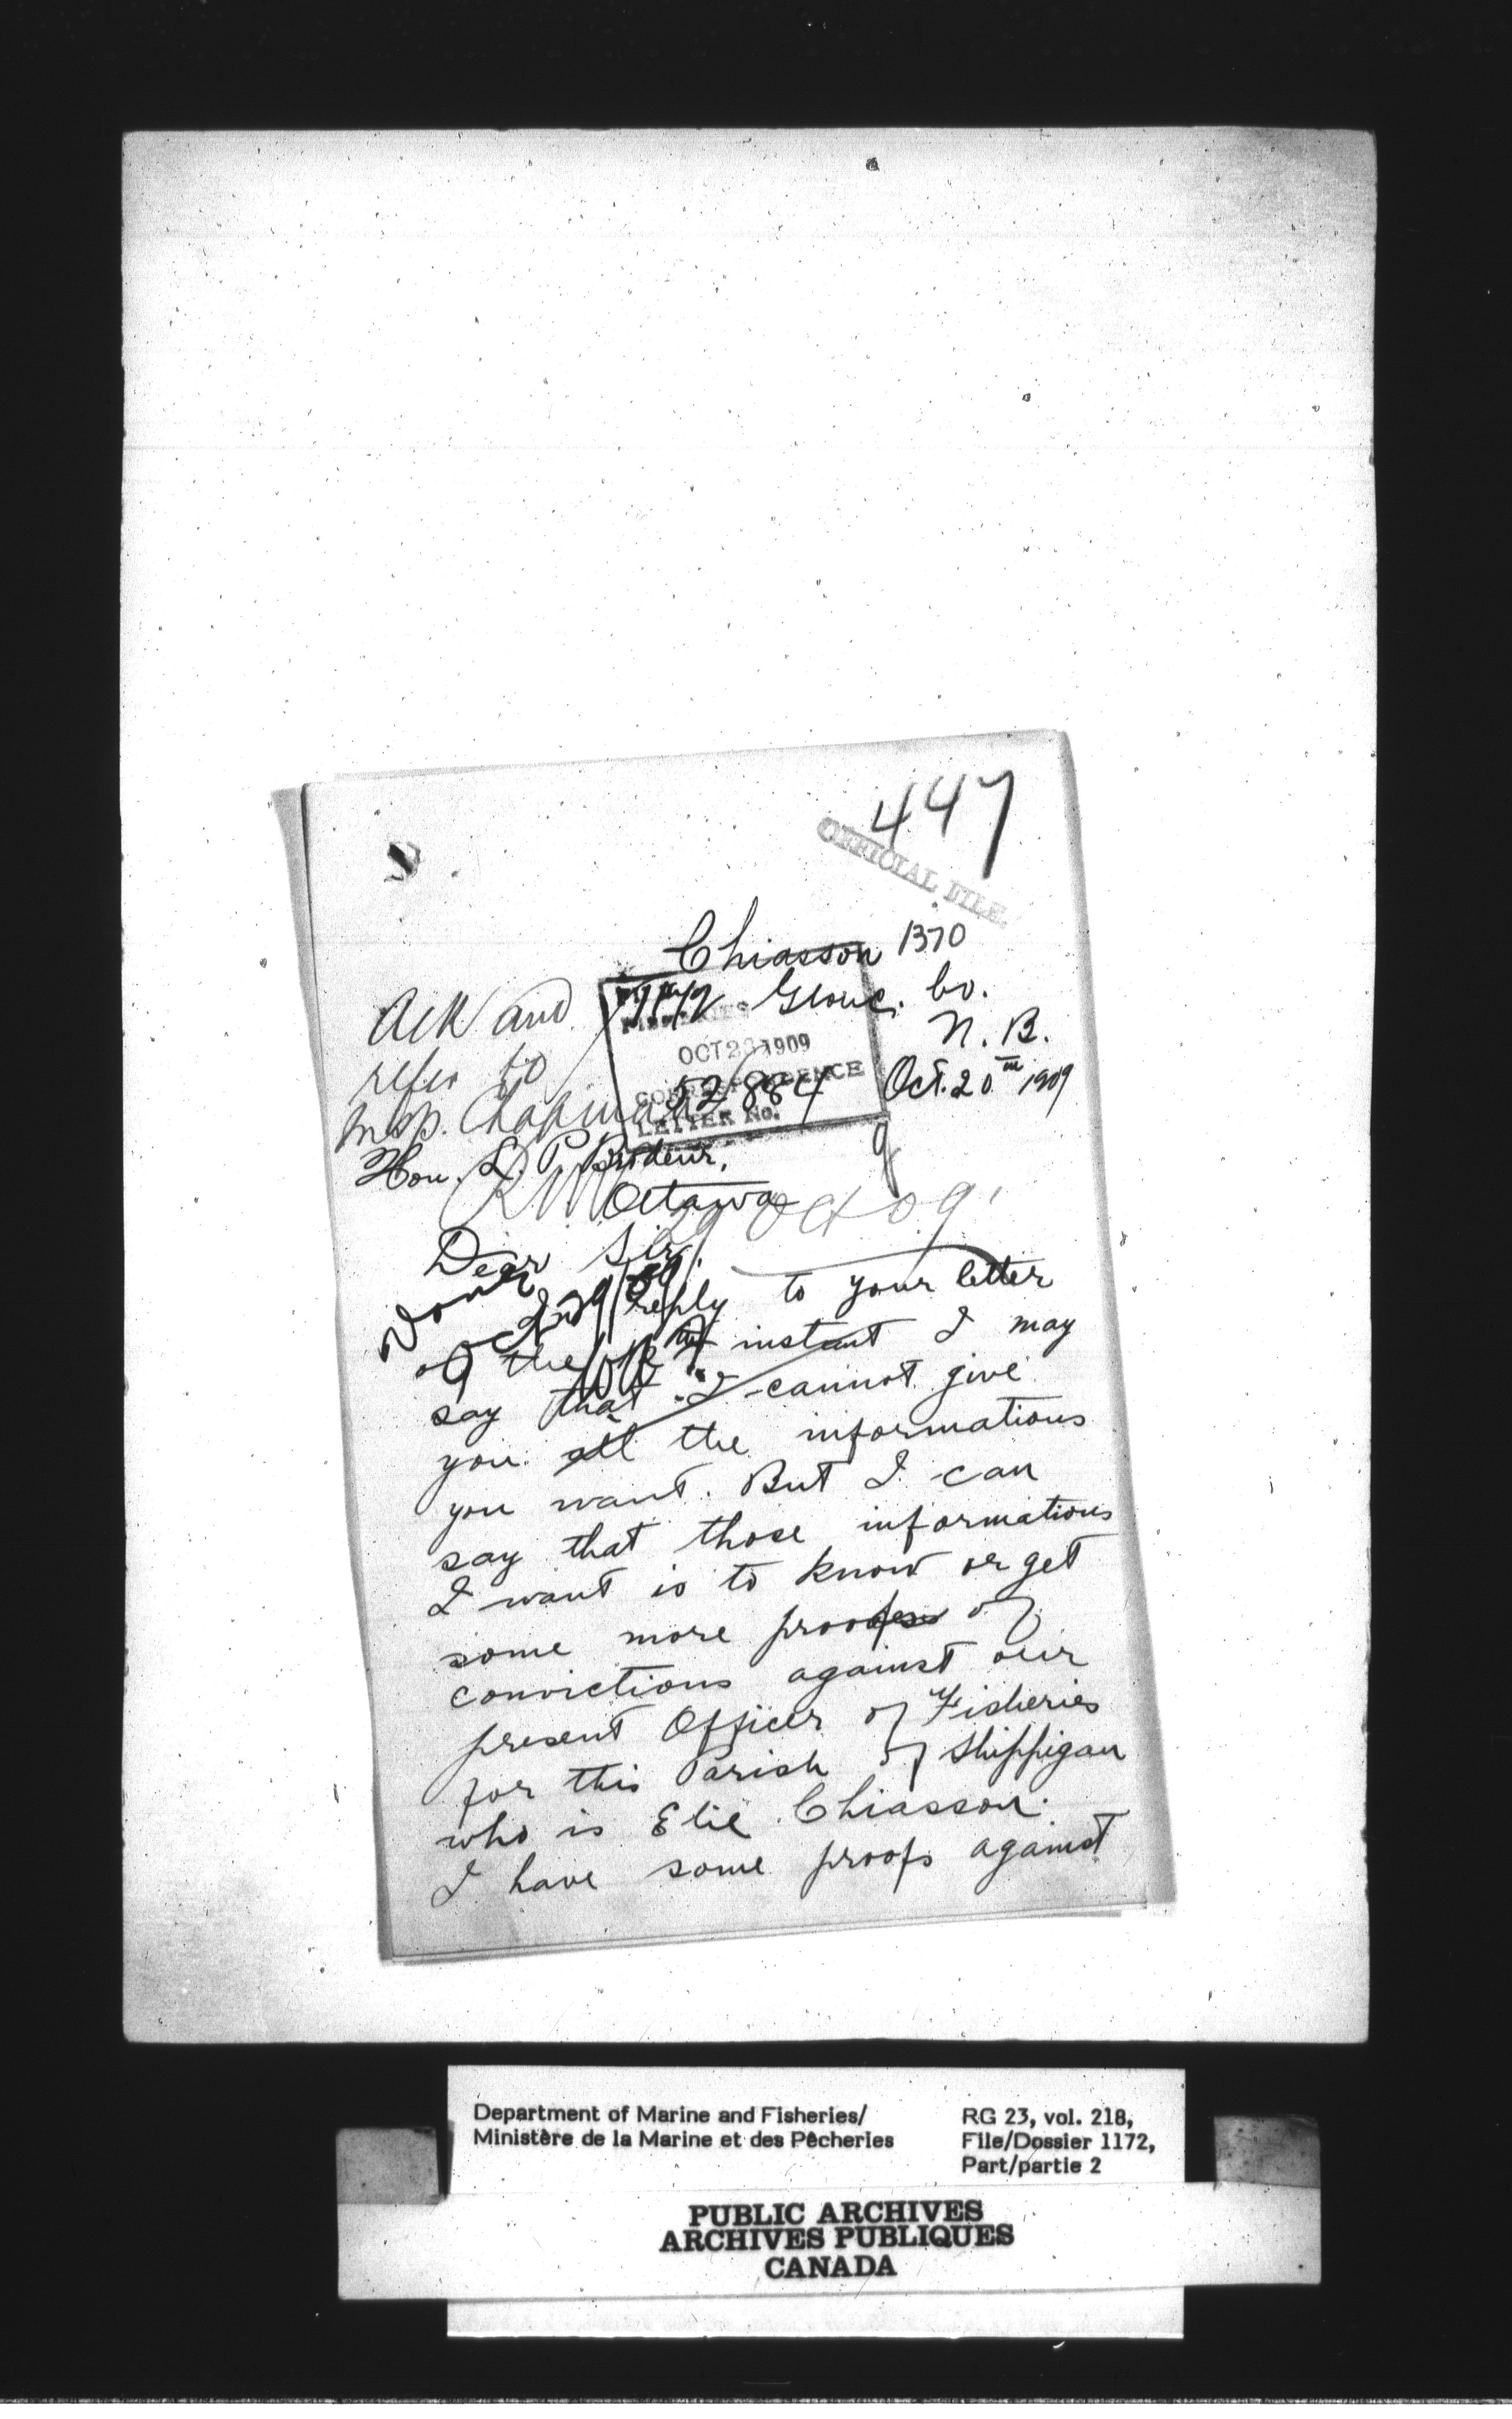 447
OFFICIAL FILE.
Chiasson 1370
1172 Glouc. Co.
N. B.
Oct. 20th 1909
Ack and
refer to
Insp. Chapman
FISHERIES
OCT 23 1909
52884
CORRESPONDENCE
LETTER No.
Hon. L. P. Brodeur,
Ottawa
Oct 09
Dear Sir,
Done
reply to your letter
of the instant I may
say that I cannot give
you all the informations
you want. But I can
say that those informations
I want is to know or get
some more proofs of
convictions against our
present Officer of Fisheries
for this Parish of Shippigan
who is Elie Chiasson.
I have some proofs against
Department of Marine and Fisheries/
Ministère de la Marine et des Pêcheries
RG 23, vol. 218,
File/Dossier 1172,
Part/partie 2
PUBLIC ARCHIVES
ARCHIVES PUBLIQUES
CANADA